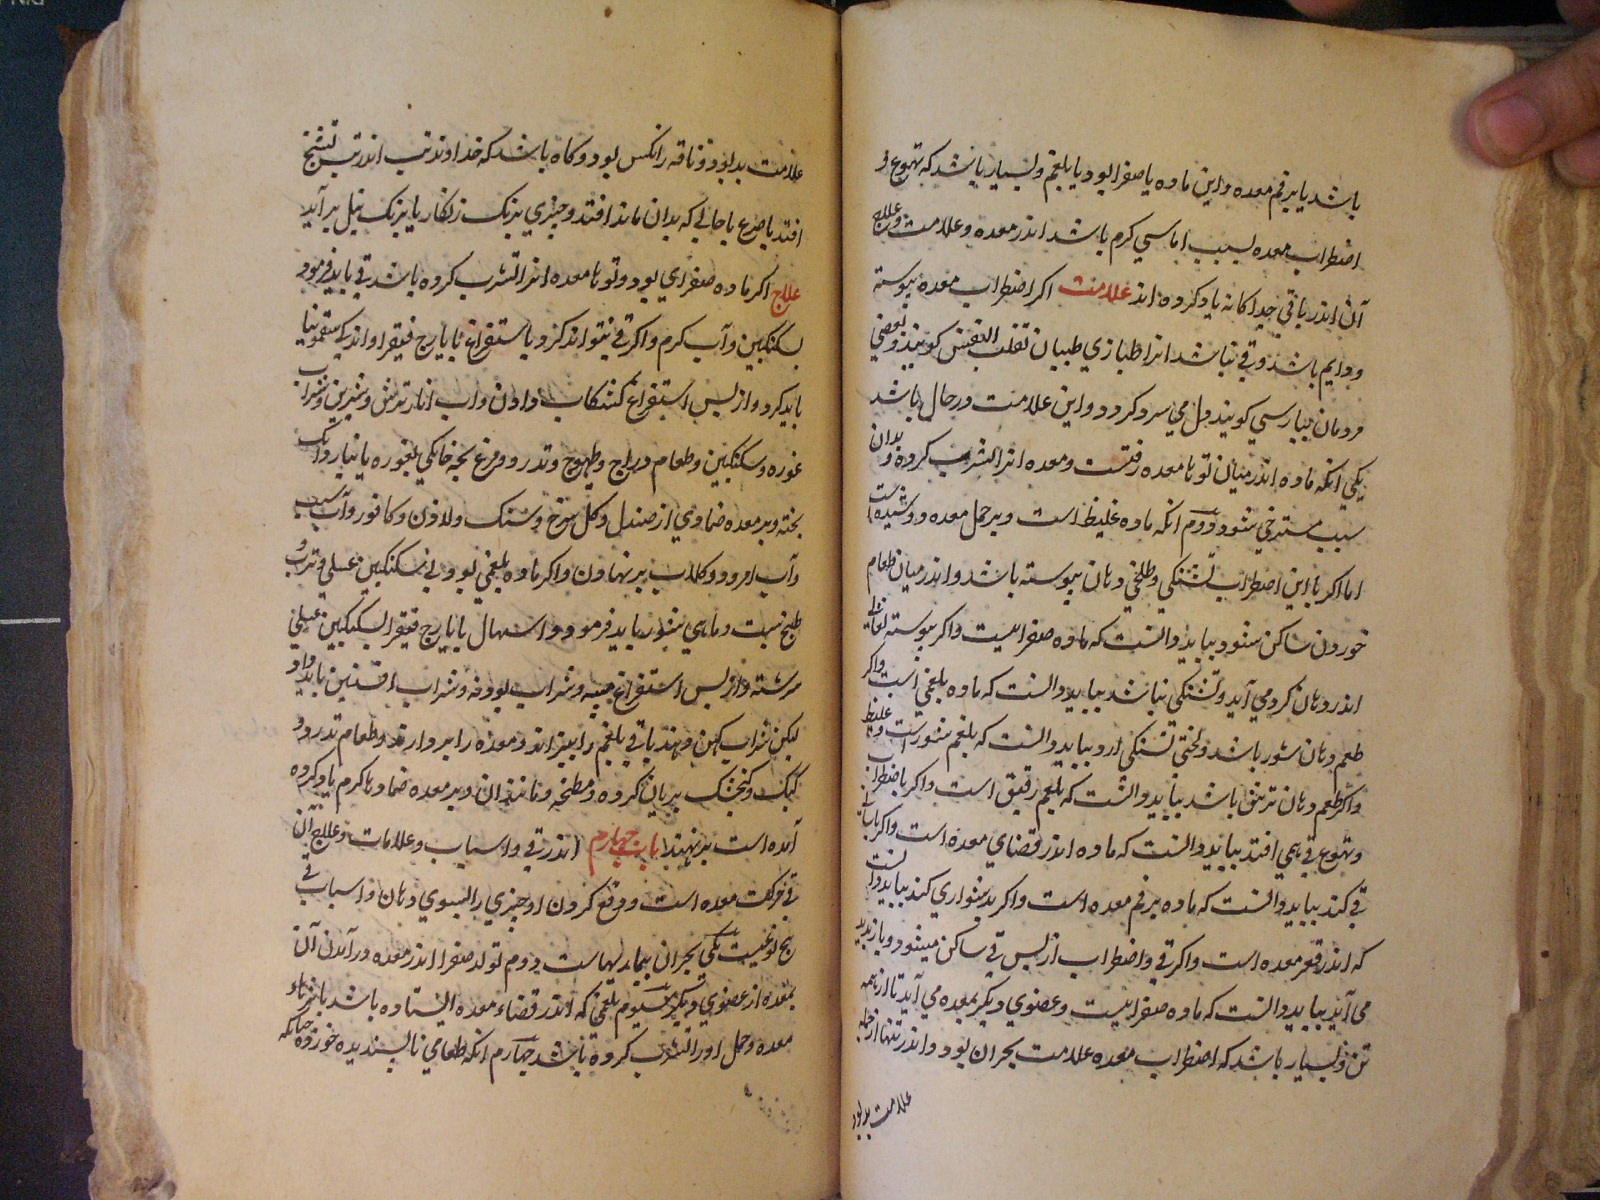 باشد یا بر فم معده و این ماده یا صفرا بود یا بلغم و بسیار باشد که تهوع و
اضطراب معده بسبب اماسی گرم باشد اندر معده و علامت و علاج
آن اندر باقی جداگانه یاد کرده اند علامت اگر اضطراب معده پیوسته
و دایم باشد و قی نباشد انرا طبیبان تقلب النفس گویند و بعضی
مردمان بپارسی گویند دل می سرد گردد و این علامت در حال باشد
یکی انکه ماده اندر میان توتا معده رفتست و معده انرا تشرب کرده و بدان
سبب مسترخی شود دووم انکه ماده غلیظ است و بر حمل معده دوشیده است
اما اگر با این اضطراب تشنگی و طلخی دهان پیوسته باشد و اندر میان طعام
خوردن ساکن شود بباید دانست که ماده صفراییست و اگر پیوسته لعابی
اندر دهان گرد می آید و تشنگی نباشد بباید دانست که ماده بلغمی است و اگر
طعم دهان شور باشد و لختی تشنگی ارد بباید دانست که بلغم شور است و غلیظ
و اگر طعم دهان ترش باشد بباید دانست که بلغم رقیق است و اگر با اضطراب
و تهوع قی همی افتد بباید دانست که ماده اندر فضای معده است و اگر باسانی
قی کند بباید دانست که ماده بر فم معده است و اگر بدشواری کند بباید دانست
که اندر قعر معده است و اگر قی و اضطراب از پس قی ساکن میشود و باز پدید
می آید بباید دانست که ماده صفراییست و عضوی دیگر بمعده می آید تا از همه
تن و بسیار باشد که اضطراب معده علامت بحران بود و اندر تبها از جمله
علامت بد بود
علامت بد بود و ناقه را نکس بود و گاه باشد که خداوند تب اندر تب تشنج
افتد یا صرع یا حالی که بدان ماند افتد و چیزی برنگ زنگار یا برنگ نیل بر آید
علاج اگر ماده صفرای بود و توتا معده انرا تشرب کرده باشد قی باید فرمود
بسکنگبین و آب گرم و اگر قی نتواند کرد باستفراغ بایارج فیقرا و اندکی سقمونیا
باید کرد و از پس استفراغ کشکاب دادن و اب انار ترش و شیرین و شراب
غوره و سکنگبین و طعام دراج و طیهوج و تدرو و مرغ بچه خانگی بغوره یا بنار دانک
پخته و بر معده ضمادی از صندل و گل سرخ و سنک و لادن و کافور و آب سیب
و آب امرود و گلاب بر نهادن و اگر ماده بلغمی بود قی سکنگبین عسلی و ترب و
طبخ شبت و ماهی شور باید فرمود و اسهال بایارج فیقرا بسکنگبین عسلی
سرشته و از پس استفراغ میبه و شراب پودنه و شراب افسنتین باید داد
لیکن شراب کهن و هند باقی بلغم را بپزاند و معده را بیرد ارند و طعام تدرو و
کبک و گنجشک بریان کرده و مطنجه و مانند ان و بر معده ضمادها گرم یاد کرده
آمده است بر نهند باب چهارم اندر قی و اسباب و علامات و علاج ان
قی حرکت معده است و دفع کردن او چیزی را بسوی دهان و اسباب قی
پنج نوعیست یکی بحران بیماریهاست دوم تولد صفرا اندر معده و در آمدن آن
بمعده از عضوی دیگر سیوم بلغمی که اندر فضاء معده ایستاده باشد یا جزءاء
معده و حمل او را تشرب کرده باشد چهارم انکه طعامی ناپسندیده خورده چنانکه